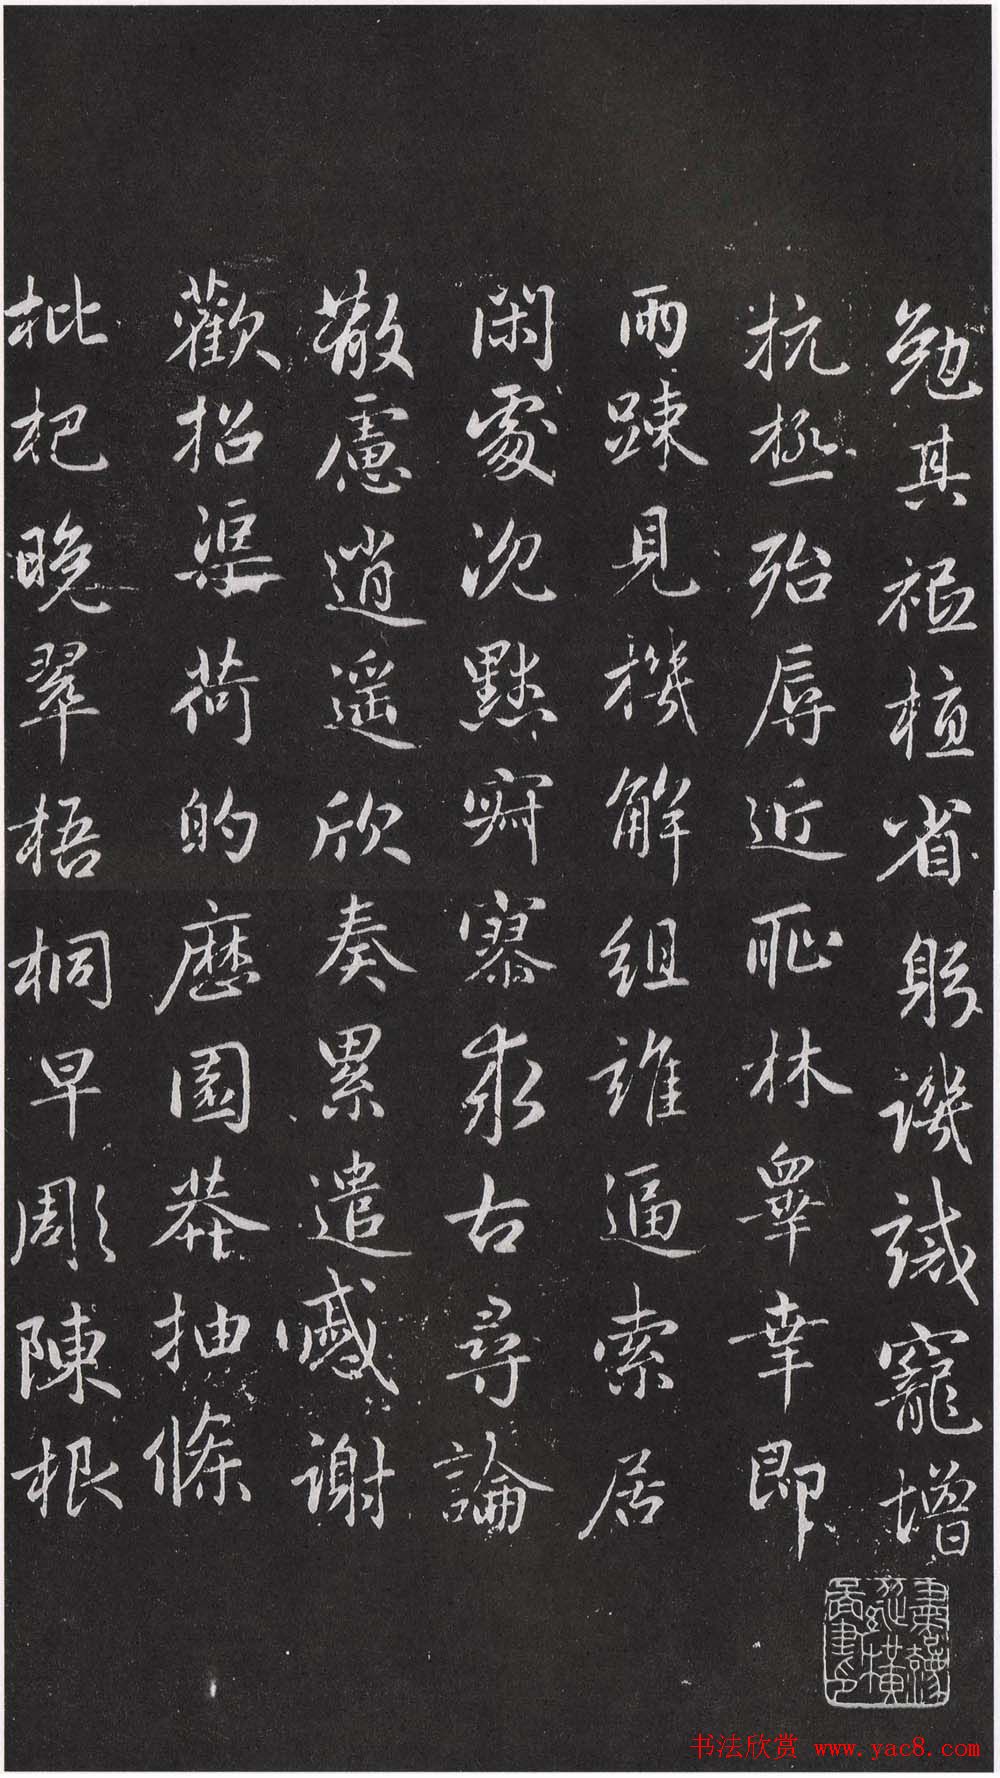 勉其祗植省躬譏誡寵增
抗極殆辱近恥林皋幸即
兩踈見機解組誰逼索居
閑處沉默寂寥求古尋論
散慮逍遥欣奏累遣慼謝
歡招渠荷的歷園莽抽條
枇杷晚翠梧桐早彫陳根
书法欣赏 www.yac8.com